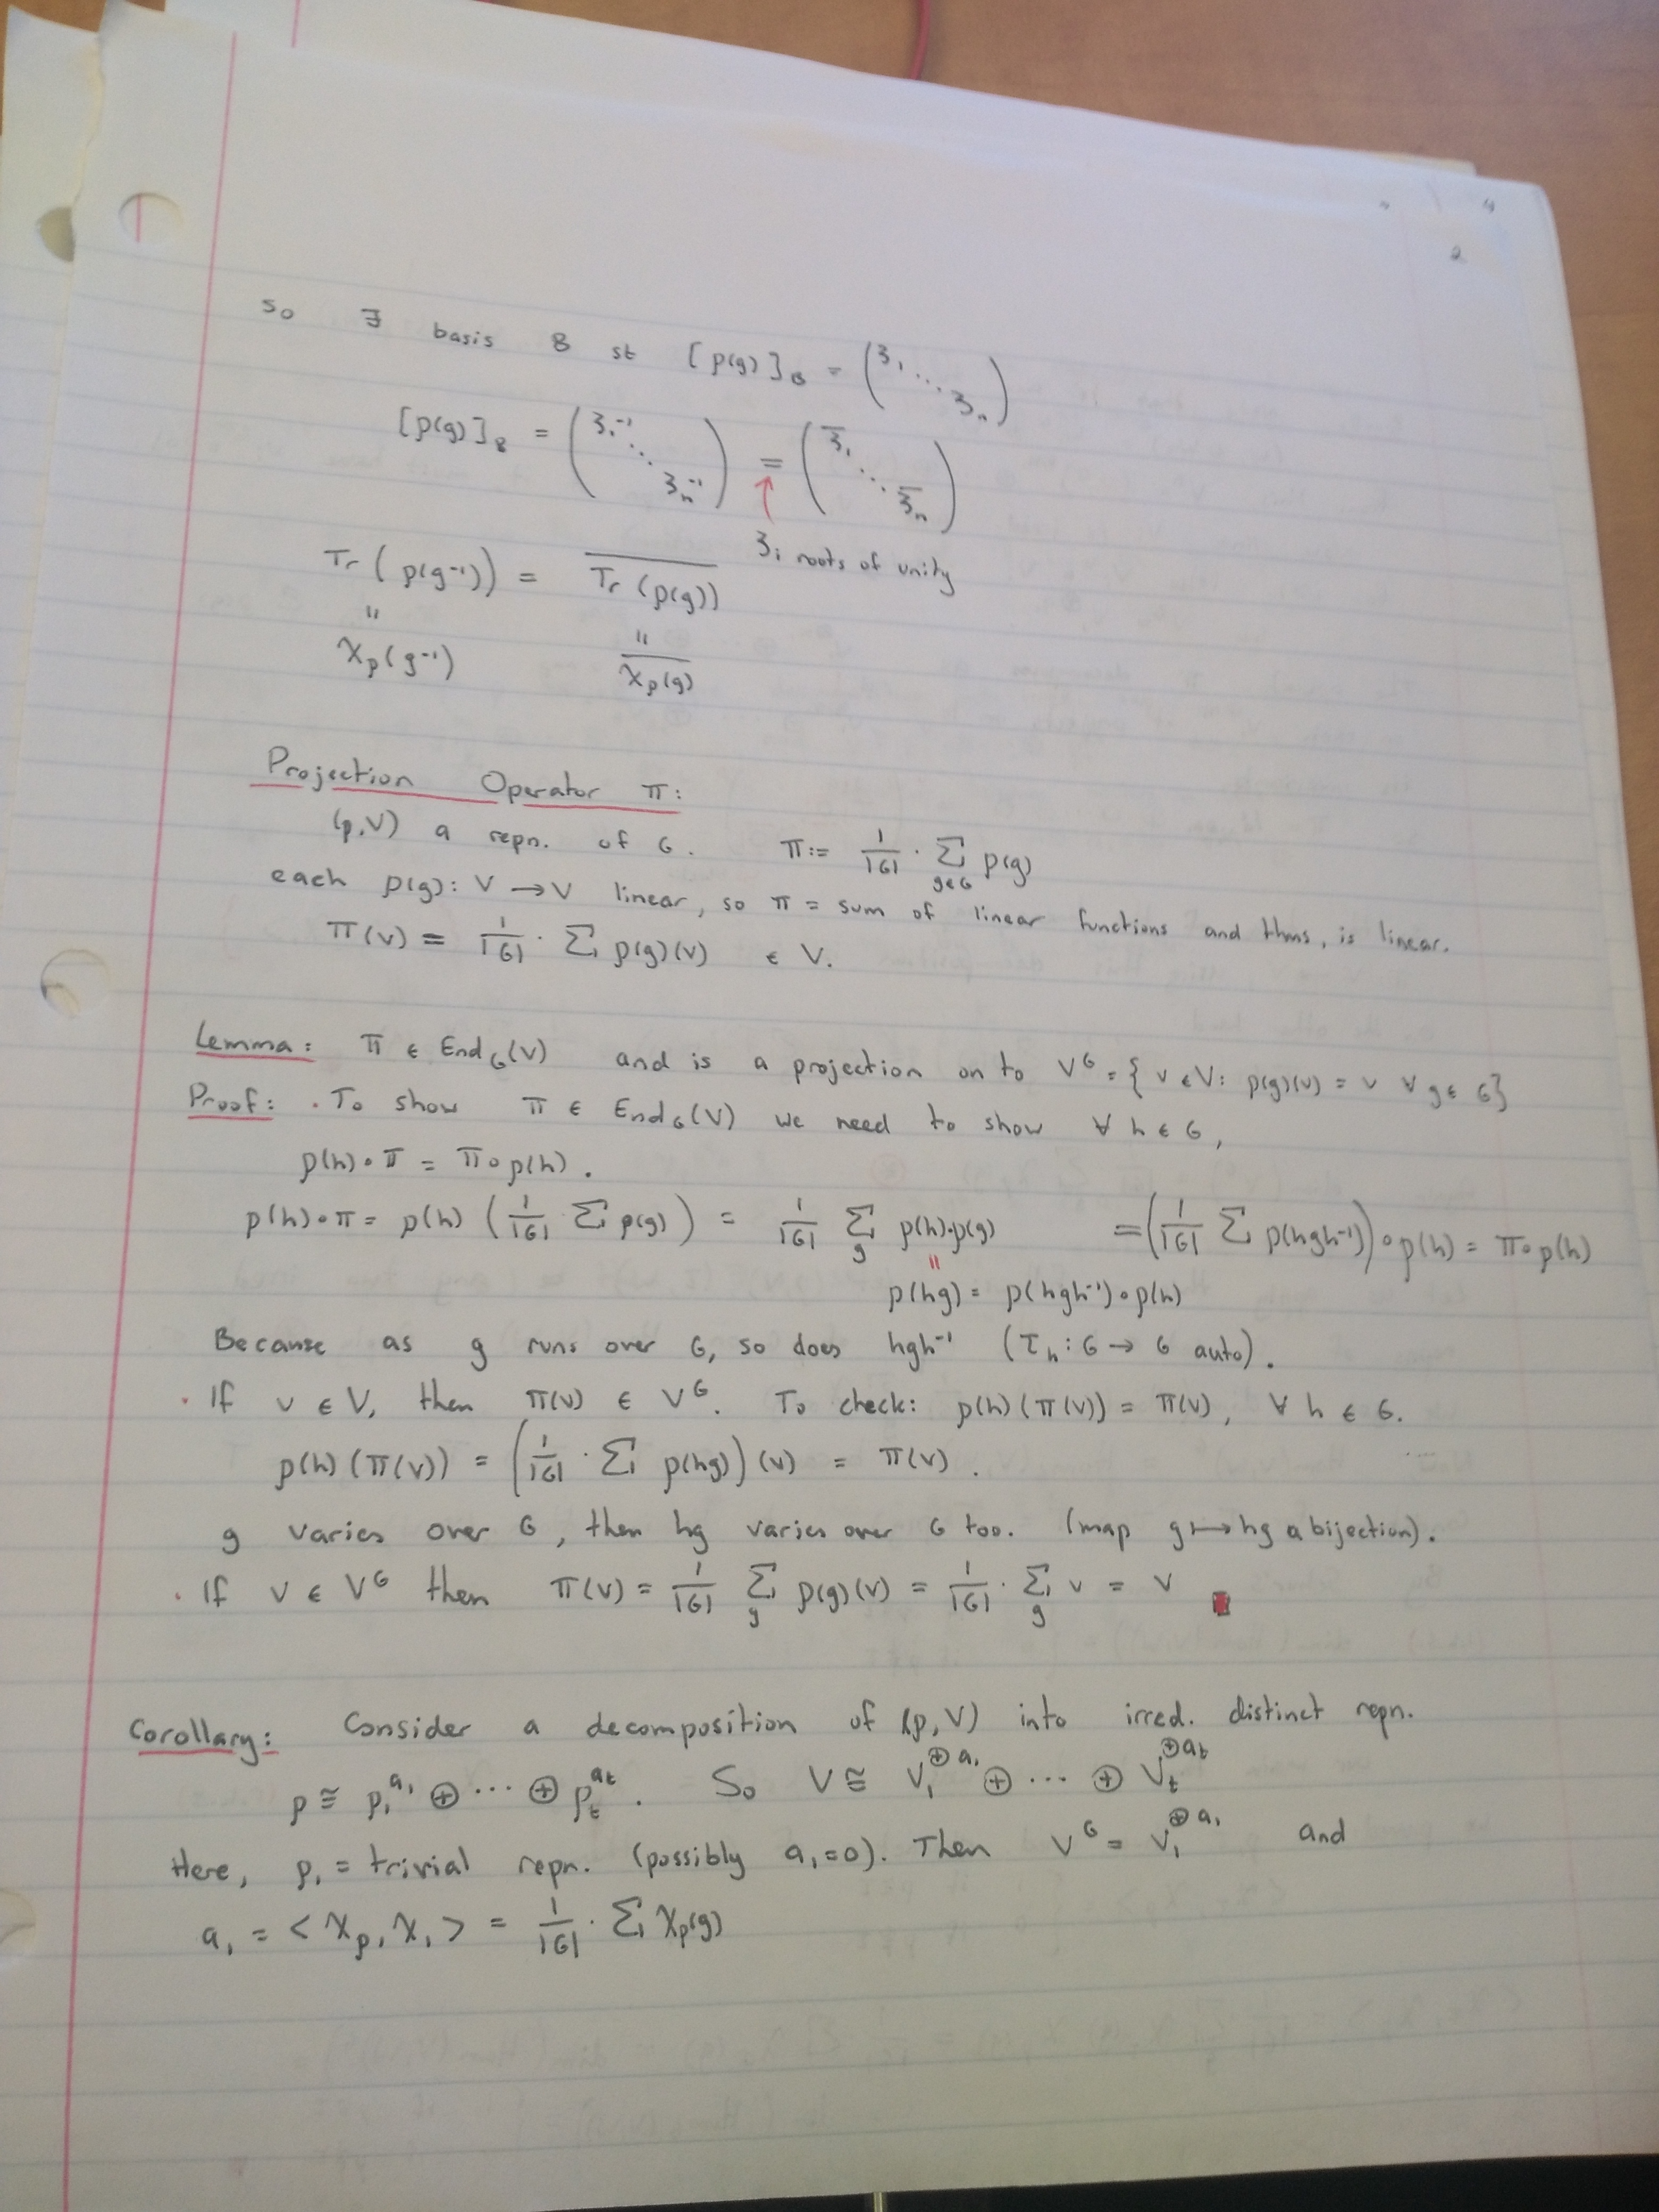 so ∃ basis B st [ρ(g)]_B = (ζ₁ ⋱ ζₙ)
[ρ(g)]_B = (ζ₁⁻¹ ⋱ ζₙ⁻¹) = (ζ̄₁ ⋱ ζ̄ₙ)
ζᵢ roots of unity
Tr(ρ(g⁻¹)) = \overline{Tr(ρ(g))}
" "
χ_ρ(g⁻¹) \overline{χ_ρ(g)}
Projection Operator π:
(ρ,V) a repn. of G. π := 1/|G| · Σ_{g∈G} ρ(g)
each ρ(g): V → V linear, so π = sum of linear functions and thus, is linear.
π(v) = 1/|G| · Σ ρ(g)(v) ∈ V.
Lemma: π ∈ End_G(V) and is a projection on to V^G = { v ∈ V: ρ(g)(v) = v ∀ g ∈ G}
Proof: · To show π ∈ End_G(V) we need to show ∀ h ∈ G,
ρ(h)∘π = π∘ρ(h).
ρ(h)∘π = ρ(h) (1/|G| Σ ρ(g)) = 1/|G| Σ_g ρ(h)∘ρ(g) = (1/|G| Σ ρ(hgh⁻¹))∘ρ(h) = π∘ρ(h)
"
ρ(hg) = ρ(hgh⁻¹)∘ρ(h)
Because as g runs over G, so does hgh⁻¹ (τ_h : G → G auto).
· If v ∈ V, then π(v) ∈ V^G. To check: ρ(h)(π(v)) = π(v), ∀ h ∈ G.
ρ(h)(π(v)) = (1/|G| · Σ ρ(hg))(v) = π(v).
g varies over G, then hg varies over G too. (map g ↦ hg a bijection).
· If v ∈ V^G then π(v) = 1/|G| Σ_g ρ(g)(v) = 1/|G| · Σ_g v = v ∎
Corollary: Consider a decomposition of (ρ,V) into irred. distinct repn.
ρ ≅ ρ₁^{a₁} ⊕ ⋯ ⊕ ρ_t^{a_t}. So V ≅ V₁^{⊕a₁} ⊕ ⋯ ⊕ V_t^{⊕a_t}
Here, ρ₁ = trivial repn. (possibly a₁=0). Then V^G = V₁^{⊕a₁} and
a₁ = <χ_ρ, χ₁> = 1/|G| · Σ χ_ρ(g)